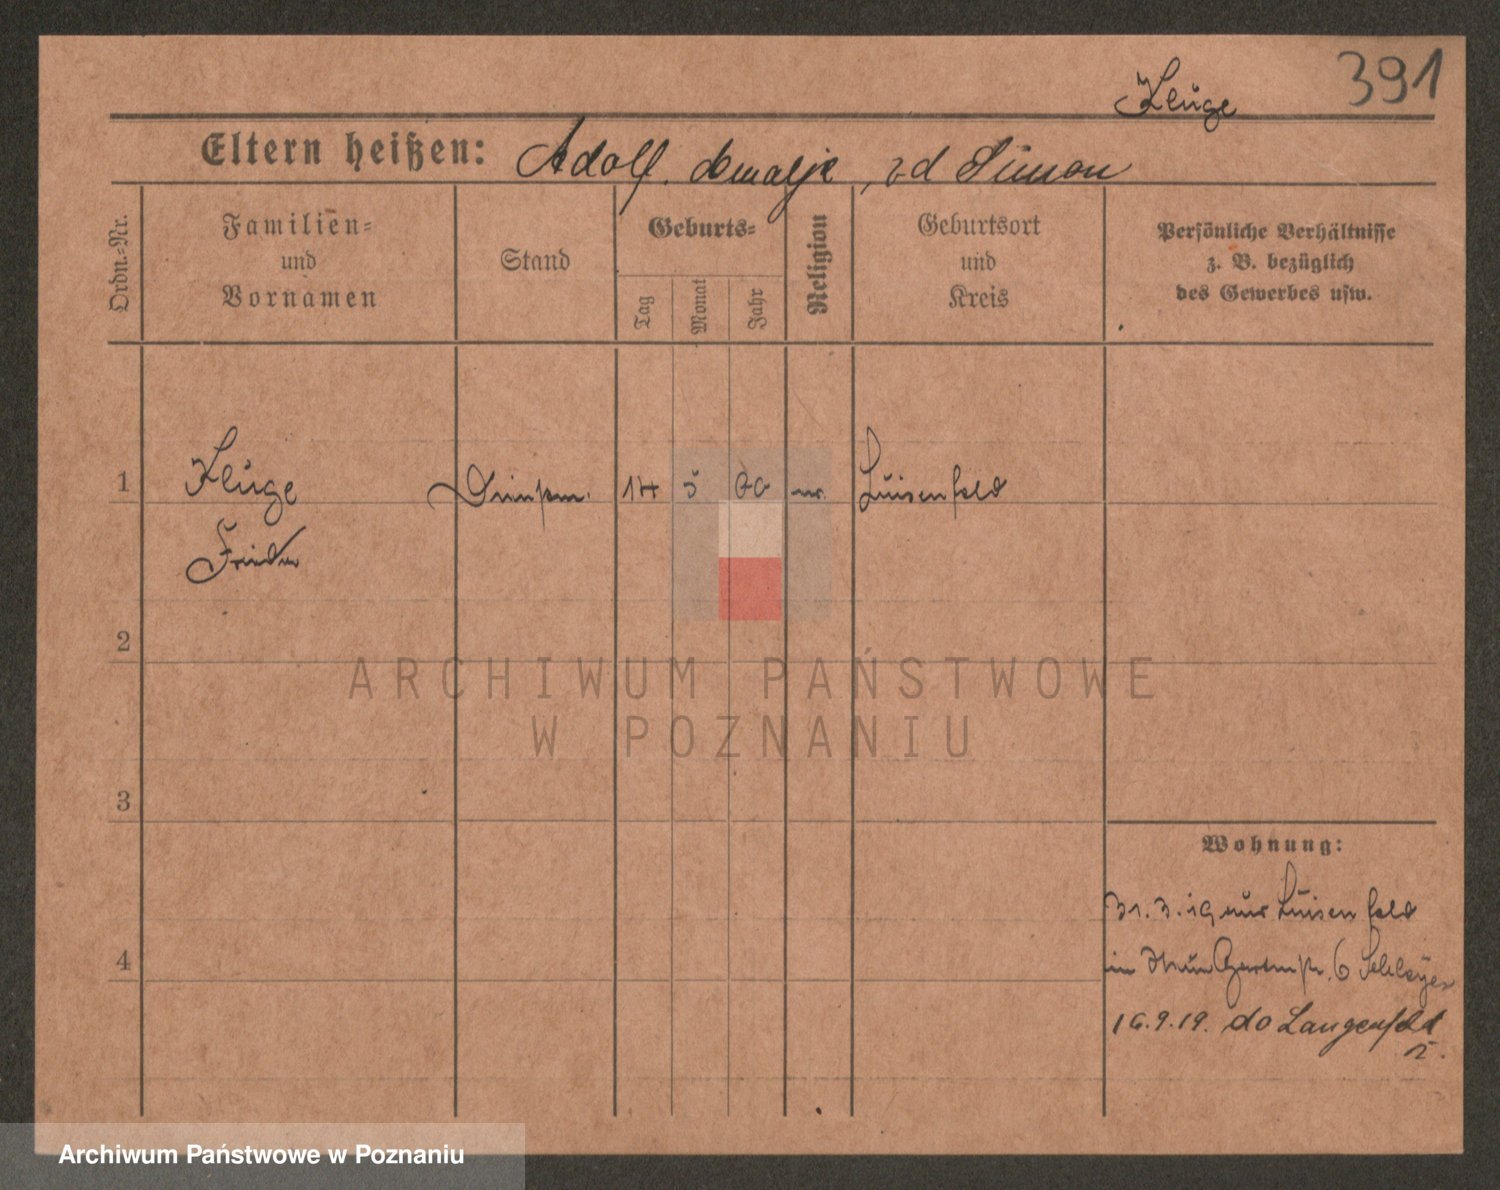 391
Kluge
Eltern heißen: Adolf, Amalje, zd Simon
Ordn.-Nr.
Familien-
und
Vornamen
Stand
Geburts-
Tag
Monat
Jahr
Religion
Geburtsort
und
Kreis
Persönliche Verhältnisse
z. B. bezüglich
des Gewerbes usw.
1
Kluge
14 5
Luisenfeld
Frieda
2
ARCHIWUM PAŃSTWOWE
W POZNANIU
3
Wohnung:
31.3.19 aus Luisenfeld
4
in 6
16.9.19. do Langenfeld
Archiwum Państwowe w Poznaniu